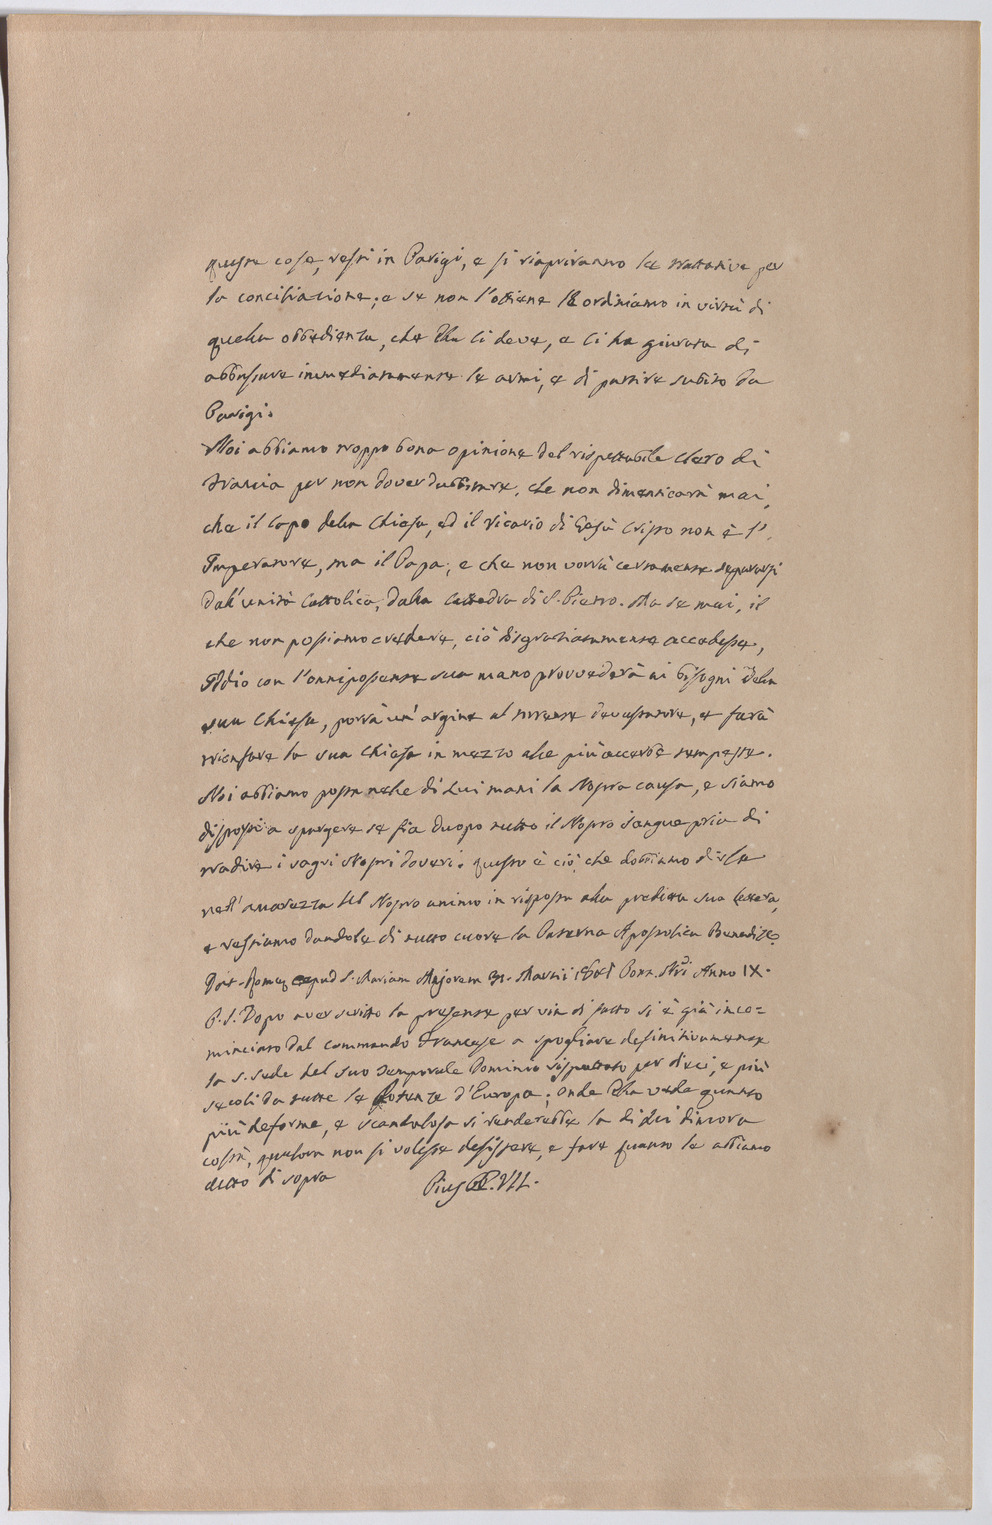 queste cose, resti in Parigi, e si riapriranno le trattative per
la conciliazione; e se non l'ottiene le ordiniamo in virtù di
quella obbedienza, che Ella ci deve, e ci ha giurata di
abbassare immediatamente le armi, e di partire subito da
Parigi.
Noi abbiamo troppo bona opinione del rispettabile clero di
Francia per non dover dubbitare, che non dimenticarà mai,
che il Capo della Chiesa, ed il Vicario di Gesù Cristo non è l'
Imperatore, ma il Papa, e che non vorrà certamente separarsi
dall'unità Cattolica, dalla Cattedra di S. Pietro. Ma se mai, il
che non possiamo credere, ciò disgraziatamente accadesse,
Iddio con l'onnipotente sua mano provvederà ai bisogni della
sua Chiesa, porrà un'argine al torrente devastatore, e farà
trionfare la sua Chiesa in mezzo alle più acerbe tempeste.
Noi abbiamo posta nelle di Lui mani la Nostra causa, e siamo
disposti a spargere se fia duopo tutto il Nostro sangue pria di
tradire i sagri Nostri doveri. questo è ciò, che dobbiamo dirle
nell'amarezza del Nostro animo in risposta alla predetta sua lettera,
e restiamo dandole di tutto cuore la Paterna Apostolica Benedize.
Dat. Romæ apud S. Mariam Majorem Martii Pont. Nri Anno IX.
P.S. Dopo aver scritto la presente per via di fatto si è già inco=
minciato dal commando Francese a spogliare definitivamente
la S. Sede del suo temporale Dominio rispettato per dieci, e più
secoli da tutte le Potenze d'Europa; onde Ella vede quanto
più deforme, e scandalosa si renderebbe la di Lei dimora
costà, qualora non si volesse desistere, e fare quanto le abbiamo
detto di sopra Pius PP. VII.